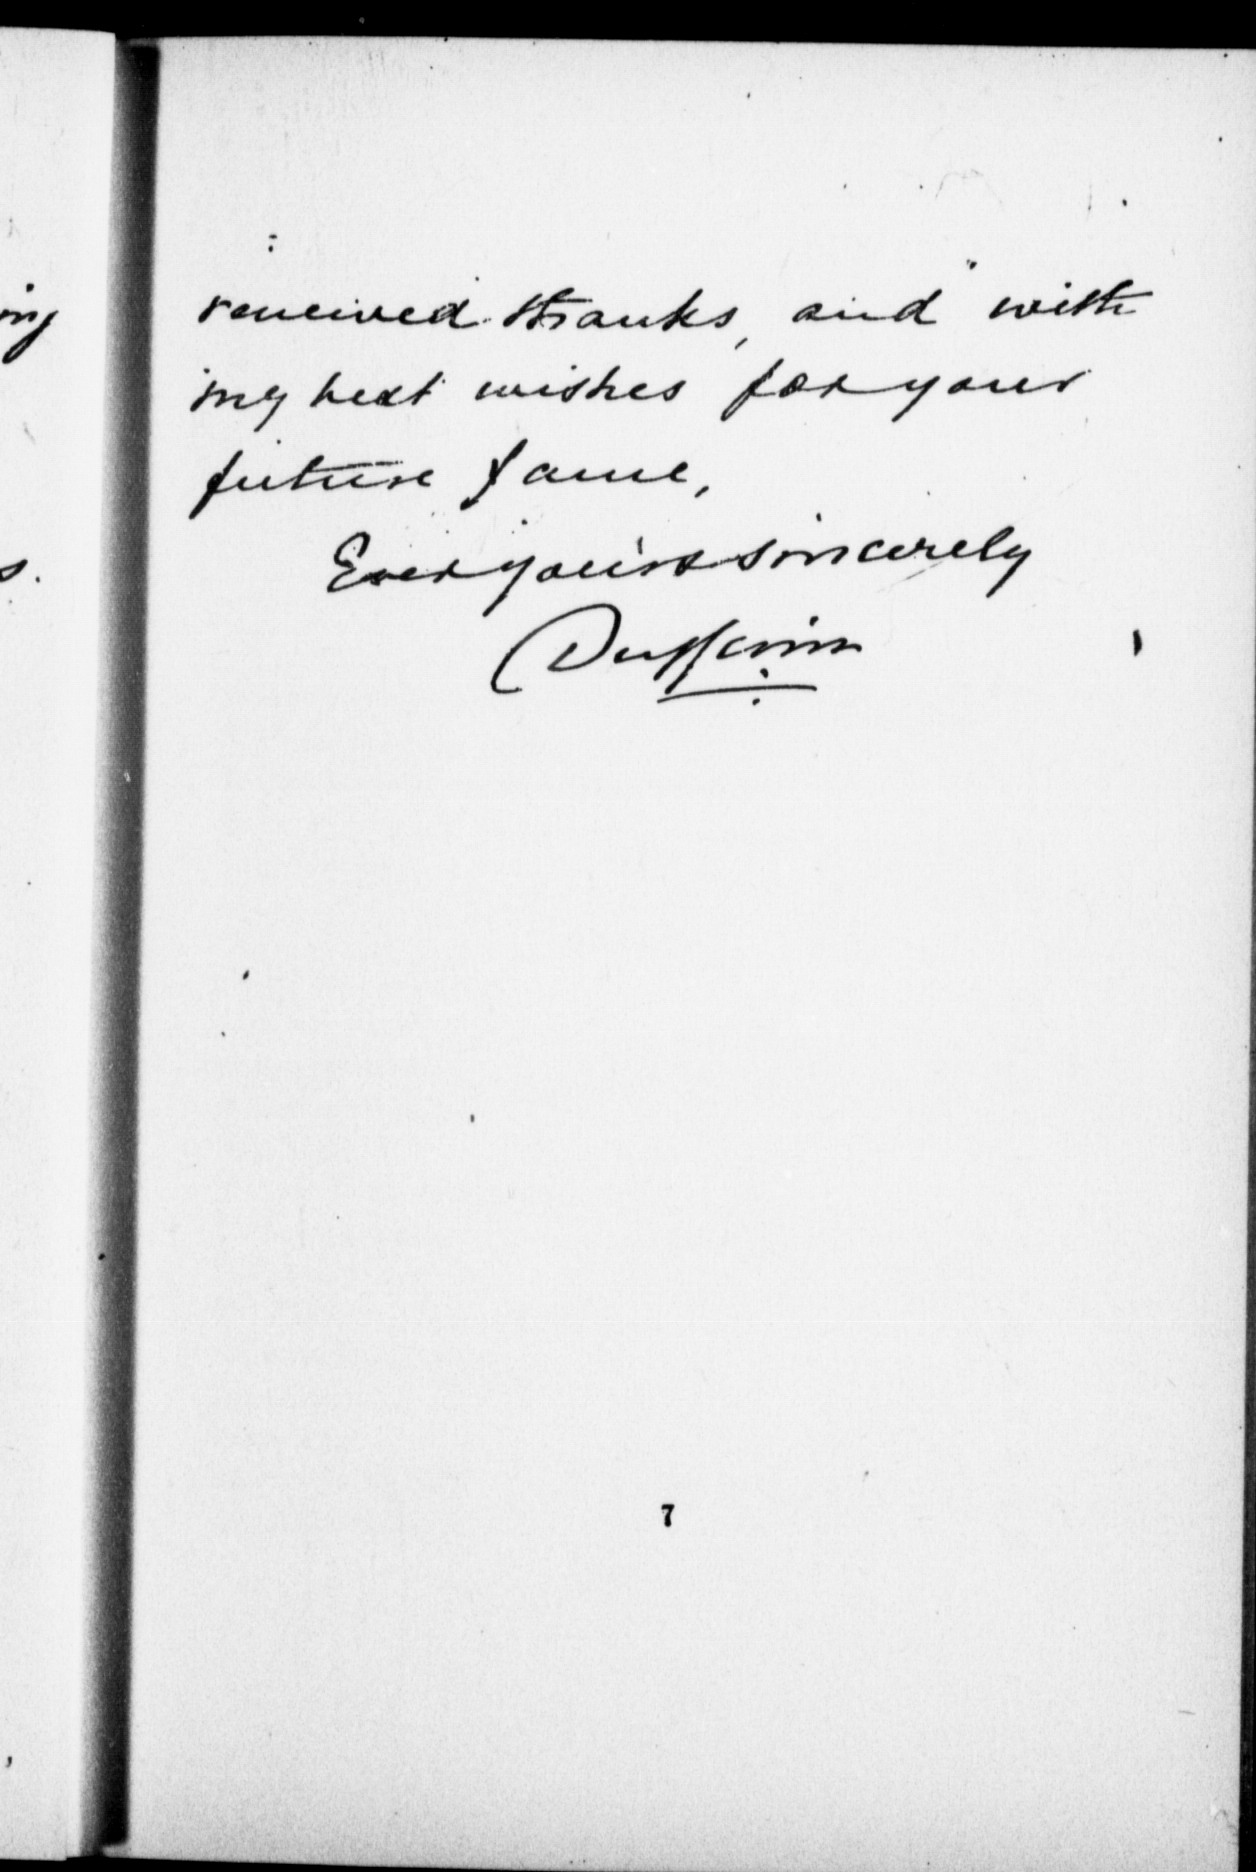 renewed thanks, and with
my best wishes for your
future fame,
Ever yours sincerely
Dufferin
7